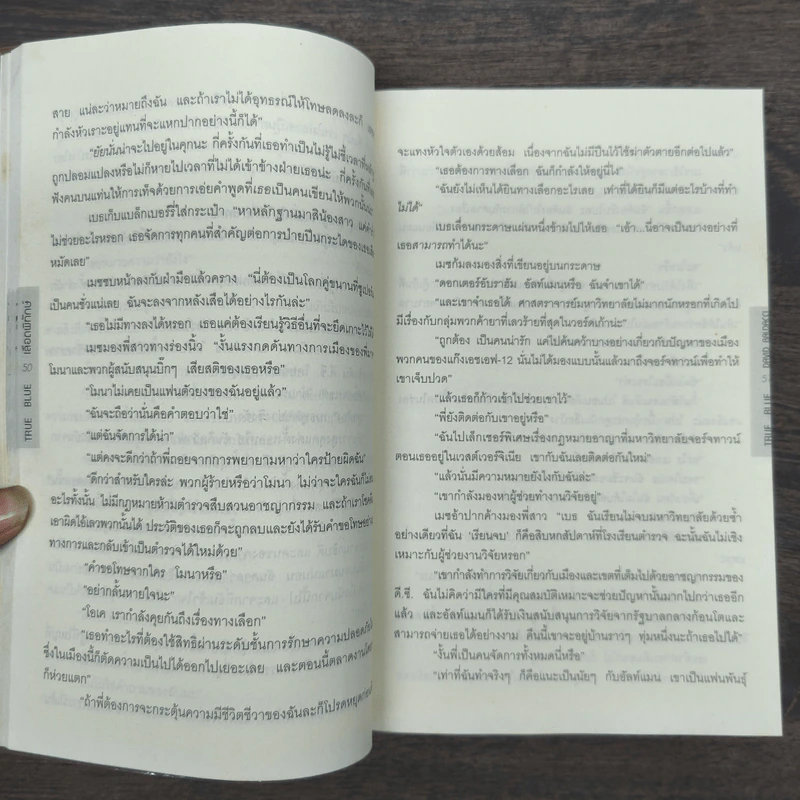 สาย แน่ละว่าหมายถึงฉัน และถ้าเราไม่ได้อุทธรณ์ให้โทษลดลงละก็
กำลังหัวเราะอยู่แทนที่จะแหกปากอย่างนี้ก็ได้"
"ยัยนั่นน่าจะไปอยู่ในคุกนะ กี่ครั้งกันที่เธอทำเป็นไม่รู้ไม่ชี้เวลา
ถูกปลอมแปลงหรือไม่ก็หายไปเวลาที่ไม่ได้เข้าข้างฝ่ายเธอน่ะ กี่ครั้งกัน
ฟังคนบนแท่นให้การเท็จด้วยการเอ่ยคำพูดที่เธอเป็นคนเขียนให้พวกนั้นน่ะ
เบธเก็บแบล็กเบอร์รี่ใส่กระเป๋า "หาหลักฐานมาสิน้องสาว แค่
ไม่ช่วยอะไรหรอก เธอจัดการทุกคนที่สำคัญต่อการป่ายปีนกระไดของเธอ
หมัดเลย"
เมซซบหน้าลงกับฝ่ามือแล้วคราง "นี่ต้องเป็นโลกคู่ขนานที่
เป็นคนชั่วแน่เลย ฉันจะลงจากหลังเสือได้อย่างไรกันล่ะ"
"เธอไม่มีทางลงได้หรอก เธอแค่ต้องเรียนรู้วิธีอื่นที่จะยึดเกาะไว้
เมซมองพี่สาวทางร่องนิ้ว "งั้นแรงกดดันทางการเมืองของพี่
โมนาและพวกผู้สนับสนุนบิ๊กๆ เสียสติของเธอหรือ"
"โมนาไม่เคยเป็นแฟนตัวยงของฉันอยู่แล้ว"
"ฉันจะถือว่านั่นคือคำตอบว่าใช่"
"แต่ฉันจัดการได้น่า"
"แต่คงจะดีกว่าถ้าพี่ถอยจากการพยายามหาว่าใครป้ายผิดฉัน"
"ดีกว่าสำหรับใครล่ะ พวกผู้ร้ายหรือว่าโมนา ไม่ว่าจะใครฉันก็ไม่
อะไรทั้งนั้น ไม่มีกฎหมายห้ามตำรวจสืบสวนอาชญากรรม และถ้าเรา
เอาผิดไอ้เลวพวกนั้นได้ ประวัติของเธอก็จะถูกลบและยังได้รับคำขอโทษอย่าง
ทางการและกลับเข้าเป็นตำรวจได้ใหม่ด้วย"
"คำขอโทษจากใคร โมนาหรือ"
"อย่ากลั้นหายใจนะ"
"โอเค เรากำลังคุยกันถึงเรื่องทางเลือก"
"เธอทำอะไรที่ต้องใช้สิทธิผ่านระดับชั้นการรักษาความปลอดภัย
ซึ่งในเมืองนี้ก็ตัดความเป็นไปได้ออกไปเยอะเลย และตอนนี้ตลาดงาน
ก็ห่วยแตก"
"ถ้าพี่ต้องการจะกระตุ้นความมีชีวิตชีวาของฉันละก็โปรดหยุด
TRUE BLUE 50 เลือดพิทักษ์
จะแทงหัวใจตัวเองด้วยส้อม เนื่องจากฉันไม่มีปืนไว้ใช้ฆ่าตัวตายอีกต่อไปแล้ว"
"เธอต้องการทางเลือก ฉันก็กำลังให้อยู่นี่ไง"
"ฉันยังไม่เห็นได้ยินทางเลือกอะไรเลย เท่าที่ได้ยินก็มีแต่อะไรบ้างที่ทำ
ไม่ได้"
เบธเลื่อนกระดาษแผ่นหนึ่งข้ามไปให้เธอ "เอ้า...นี่อาจเป็นบางอย่างที่
เธอสามารถทำได้นะ"
เมซก้มลงมองสิ่งที่เขียนอยู่บนกระดาษ
"ดอกเตอร์อับราฮัม อัลท์แมนหรือ ฉันจำเขาได้"
"และเขาจำเธอได้ ศาสตราจารย์มหาวิทยาลัยไม่มากนักหรอกที่เกิดไป
มีเรื่องกับกลุ่มพวกค้ายาที่เลวร้ายที่สุดในวอร์ดเก้าน่ะ"
"ถูกต้อง เป็นคนน่ารัก แค่ไปค้นคว้าบางอย่างเกี่ยวกับปัญหาของเมือง
พวกคนของแก๊งเอชเอฟ-12 นั่นไม่ได้มองแบบนั้นแล้วมาถึงจอร์จทาวน์เพื่อทำให้
เขาเจ็บปวด"
"แล้วเธอก็ก้าวเข้าไปช่วยเขาไว้"
"พี่ยังติดต่อกับเขาอยู่หรือ"
"ฉันไปเล็กเชอร์พิเศษเรื่องกฎหมายอาญาที่มหาวิทยาลัยจอร์จทาวน์
ตอนเธออยู่ในเวสต์เวอร์จิเนีย เขากับฉันเลยติดต่อกันใหม่"
"แล้วนั่นมีความหมายยังไงกับฉันล่ะ"
"เขากำลังมองหาผู้ช่วยทำงานวิจัยอยู่"
เมซอ้าปากค้างมองพี่สาว "เบธ ฉันเรียนไม่จบมหาวิทยาลัยด้วยซ้ำ
อย่างเดียวที่ฉัน 'เรียนจบ' ก็คือสิบหกสัปดาห์ที่โรงเรียนตำรวจ ฉะนั้นฉันไม่เชิง
เหมาะกับผู้ช่วยงานวิจัยหรอก"
"เขากำลังทำการวิจัยเกี่ยวกับเมืองและเขตที่เต็มไปด้วยอาชญากรรมของ
ดี.ซี. ฉันไม่คิดว่ามีใครที่มีคุณสมบัติเหมาะจะช่วยปัญหานั้นมากไปกว่าเธออีก
แล้ว และอัลท์แมนก็ได้รับเงินสนับสนุนการวิจัยจากรัฐบาลกลางก้อนโตและ
สามารถจ่ายเธอได้อย่างงาม คืนนี้เขาจะอยู่บ้านราวๆ ทุ่มหนึ่งนะถ้าเธอไปได้"
"งั้นพี่เป็นคนจัดการทั้งหมดนี่หรือ"
"เท่าที่ฉันทำจริงๆ ก็คือแนะเป็นนัยๆ กับอัลท์แมน เขาเป็นแฟนพันธุ์
TRUE BLUE DAVID BALDACCI